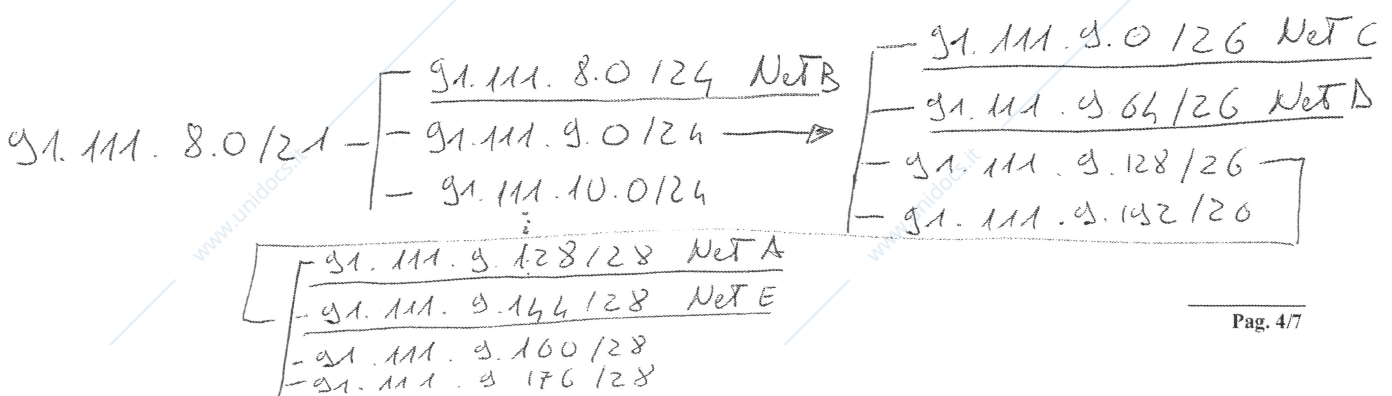 91.111.8.0/21
91.111.8.0/24 Net B
91.111.9.0/24
91.111.10.0/24
91.111.9.0/26 Net C
91.111.9.64/26 Net D
91.111.9.128/26
91.111.9.192/26
91.111.9.128/28 Net A
91.111.9.144/28 Net E
91.111.9.160/28
91.111.9.176/28
Pag. 4/7
www.unidocs.it
www.unidocs.it